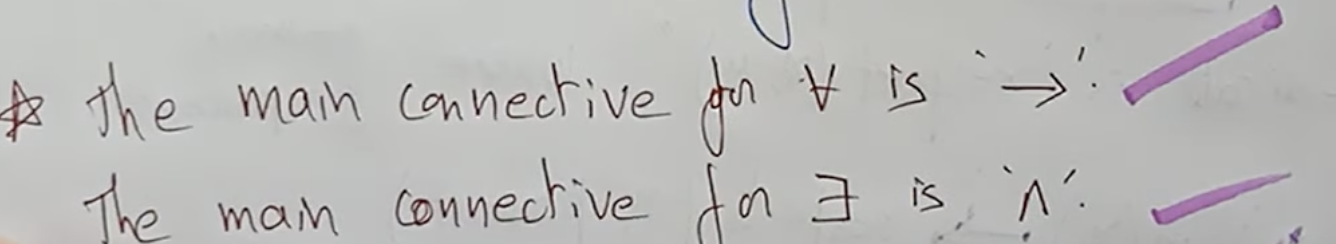 ☆ The main connective for ∀ is '→'.
The main connective for ∃ is '∧'.